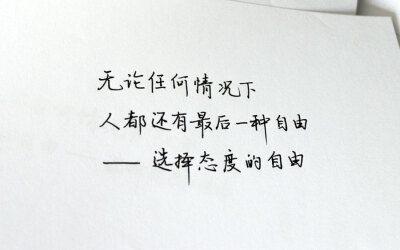 无论任何情况下
人都还有最后一种自由
——选择态度的自由